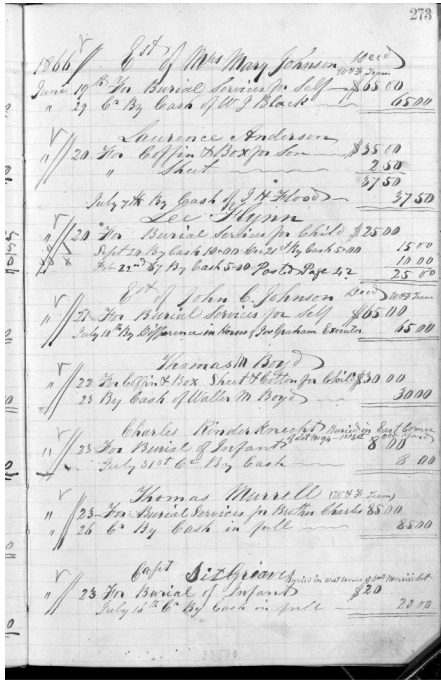 273
1866 Est of Mrs Mary Johnson Decd
June 19th For Burial Services for Self $65 00
" 29 Cr By Cash of W J Black 65 00
Laurence Anderson
" 20 For Coffin & Box for Son $35 00
" Sheet 2 50
37 50
July 7th By Cash of J H Flood 37 50
Lee Flynn
" 20 For Burial Services for Child $25 00
Sept 20 By Cash 10.00 21st By Cash 5.00 15 00
Feb 22nd 67 By Cash Postd Page 42 10 00
25 00
Est of John C. Johnson Decd
" 21 For Burial Services for Self $65 00
July 10th By Difference in Horses of Jos Graham Executor 65 00
Thomas M Boyd
" 22 For Coffin & Box Sheet & Cotton for Child $30 00
" 23 By Cash of Walter M Boyd 30 00
Charles Kinderknecht Buried in East Corner
of Lot
" 23 For Burial of Infant 8 00
July 31st Cr By Cash 8 00
Thomas Murrell
" 23 For Burial Services for Brother Charles 85 00
" 26 Cr By Cash in full 85 00
Capt Sitgreaves Buried in west corner of
" 23 For Burial of Infant $20
July 16th Cr By Cash in full 20 00